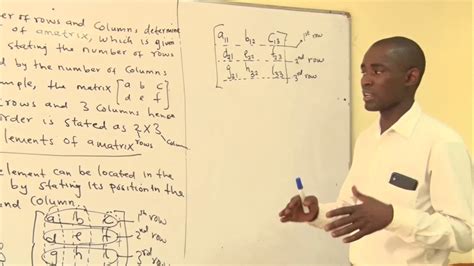 er of rows and columns determine
of amatrix, which is given
stating the number of rows
d by the number of columns
mple, the matrix [a b c
d e f]
rows and 3 columns hence
order is stated as 2×3
rows column
lements of amatrix
element can be located in the
by stating its position in the
and column.
a b c 1st row
d e f 2nd row
g h i 3rd row
a11 b12 c13 1st row
d21 e22 f23 2nd row
g31 h32 i33 3rd row